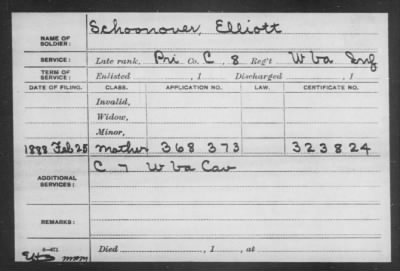 NAME OF SOLDIER: Schoonover, Elliott
SERVICE: Late rank, Pri Co. C, 8 Reg't W Va Inf
TERM OF SERVICE: Enlisted , 1 Discharged , 1
DATE OF FILING. CLASS. APPLICATION NO. LAW. CERTIFICATE NO.
Invalid,
Widow,
Minor,
1888 Feb 25 Mother 368 373 323824
C 7 W Va Cav
ADDITIONAL SERVICES:
REMARKS:
Died , 1 , at